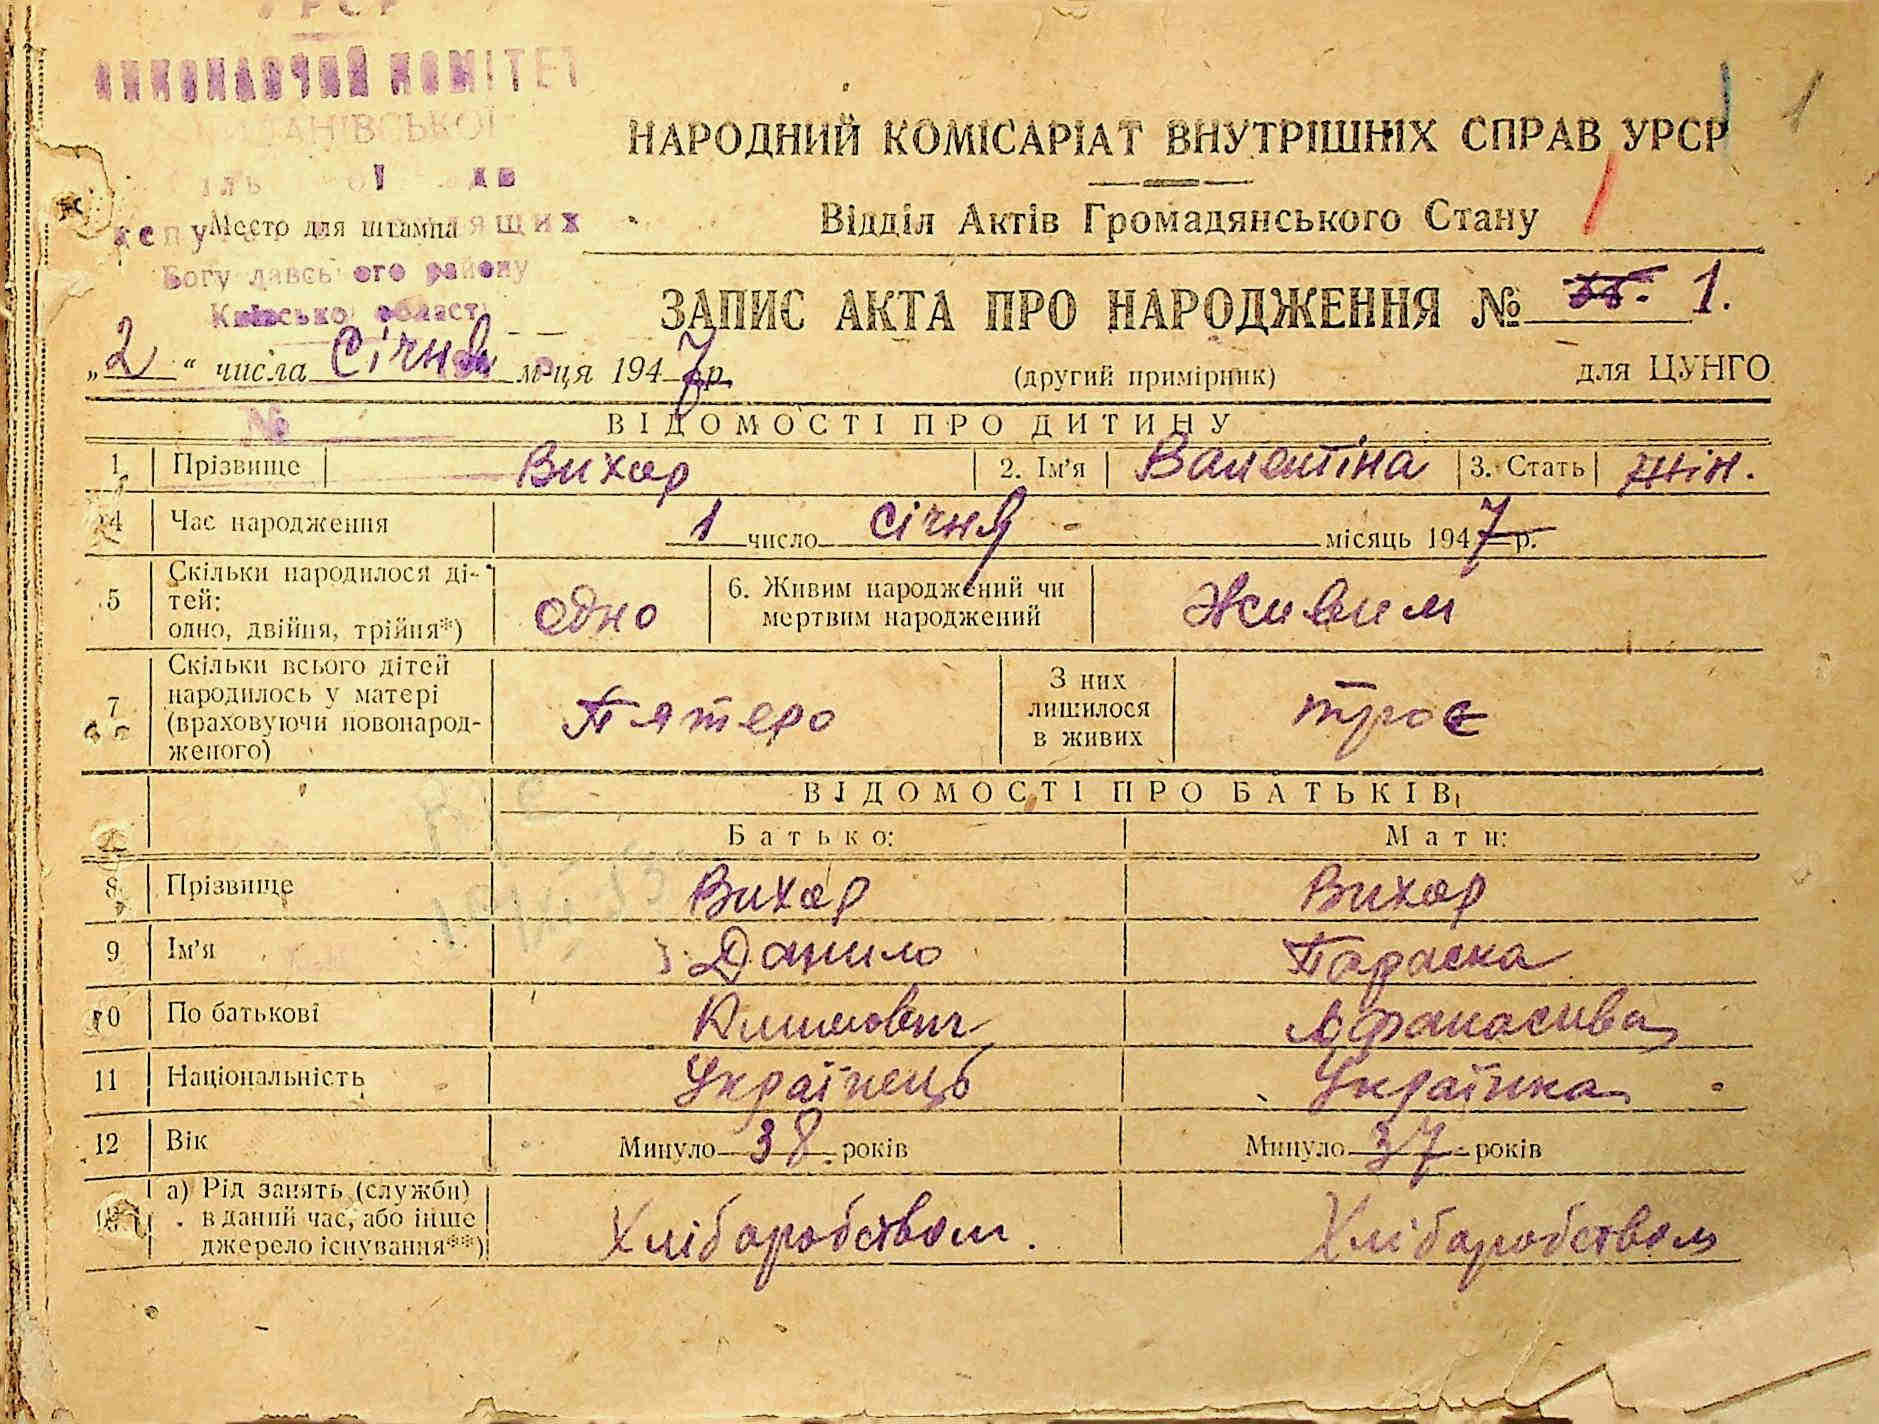 УРСР
ВИКОНАВЧИЙ КОМІТЕТ
Место для штампа
Богуславського району
Київської області
НАРОДНИЙ КОМІСАРІАТ ВНУТРІШНІХ СПРАВ УРСР
1
Відділ Актів Громадянського Стану
ЗАПИС АКТА ПРО НАРОДЖЕННЯ № 1.
„2“ числа Січня м-ця 1947 р.
(другий примірник) для ЦУНГО
№
ВІДОМОСТІ ПРО ДИТИНУ
1 Прізвище Вихор 2. Ім'я Валентіна 3. Стать жін.
4 Час народження 1 число січня місяць 1947 р.
5 Скільки народилося дітей: одно, двійня, трійня*) одно 6. Живим народжений чи мертвим народжений Живим
7 Скільки всього дітей народилось у матері (враховуючи новонародженого) Пятеро З них лишилося в живих троє
ВІДОМОСТІ ПРО БАТЬКІВ
Батько: Мати:
8 Прізвище Вихор Вихор
9 Ім'я Данило Параска
10 По батькові Климович Афанасива
11 Національність Українець Українка
12 Вік Минуло 38 років Минуло 37 років
13 а) Рід занять (служби) в даний час, або інше джерело існування**) Хліборобством. Хліборобством